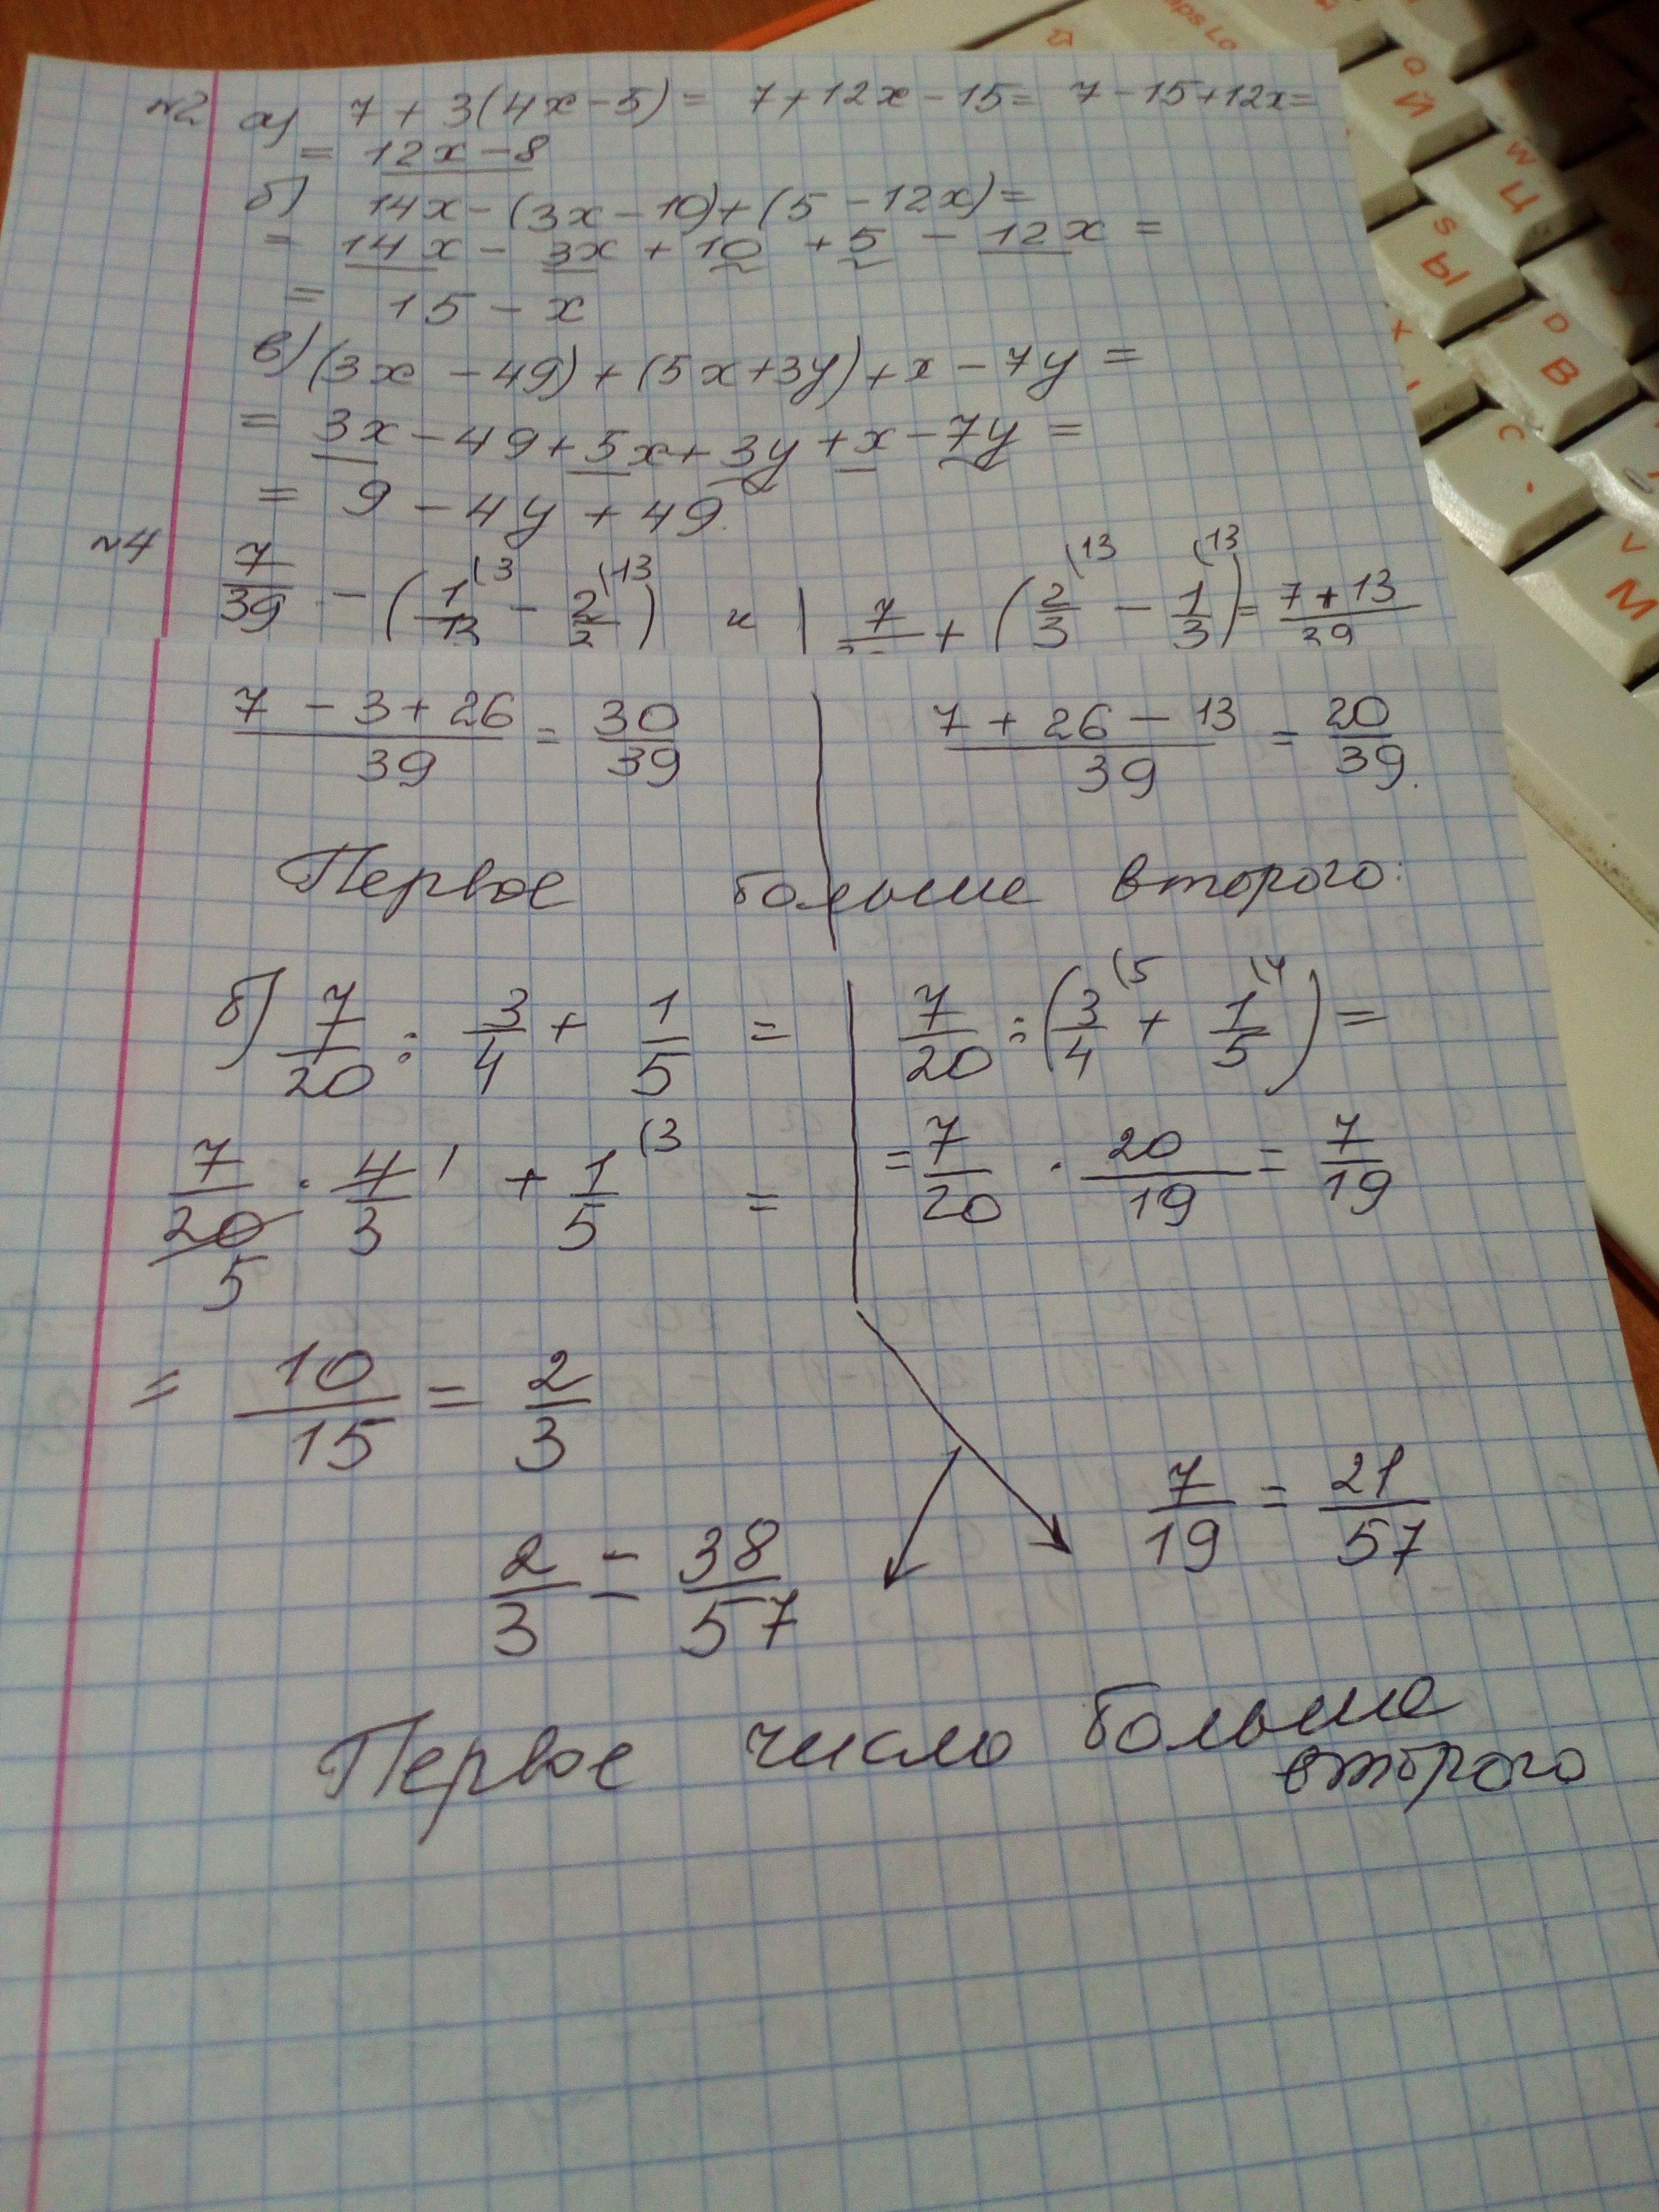 №2 а) 7 + 3(4x - 5) = 7 + 12x - 15 = 7 - 15 + 12x =
= 12x - 8
б) 14x - (3x - 10) + (5 - 12x) =
= 14x - 3x + 10 + 5 - 12x =
= 15 - x
в) (3x - 49) + (5x + 3y) + x - 7y =
= 3x - 49 + 5x + 3y + x - 7y =
= 9 - 4y + 49.
№4 7/39 - (1/13 (3 - 2/3 (13) и | 7/39 + (2/3 (13 - 1/3 (13) = 7 + 13/39
7 - 3 + 26/39 = 30/39 | 7 + 26 - 13/39 = 20/39.
Первое больше второго.
б) 7/20 : 3/4 + 1/5 = | 7/20 : (3/4 (5 + 1/5 (4) =
7/20 5 · 4/3 1 + 1/5 (3 = | = 7/20 · 20/19 = 7/19
= 10/15 = 2/3
2/3 = 38/57 7/19 = 21/57
Первое число больше
второго
Caps Lo
Й
W Ц
S Ы
D В
X
C
V М